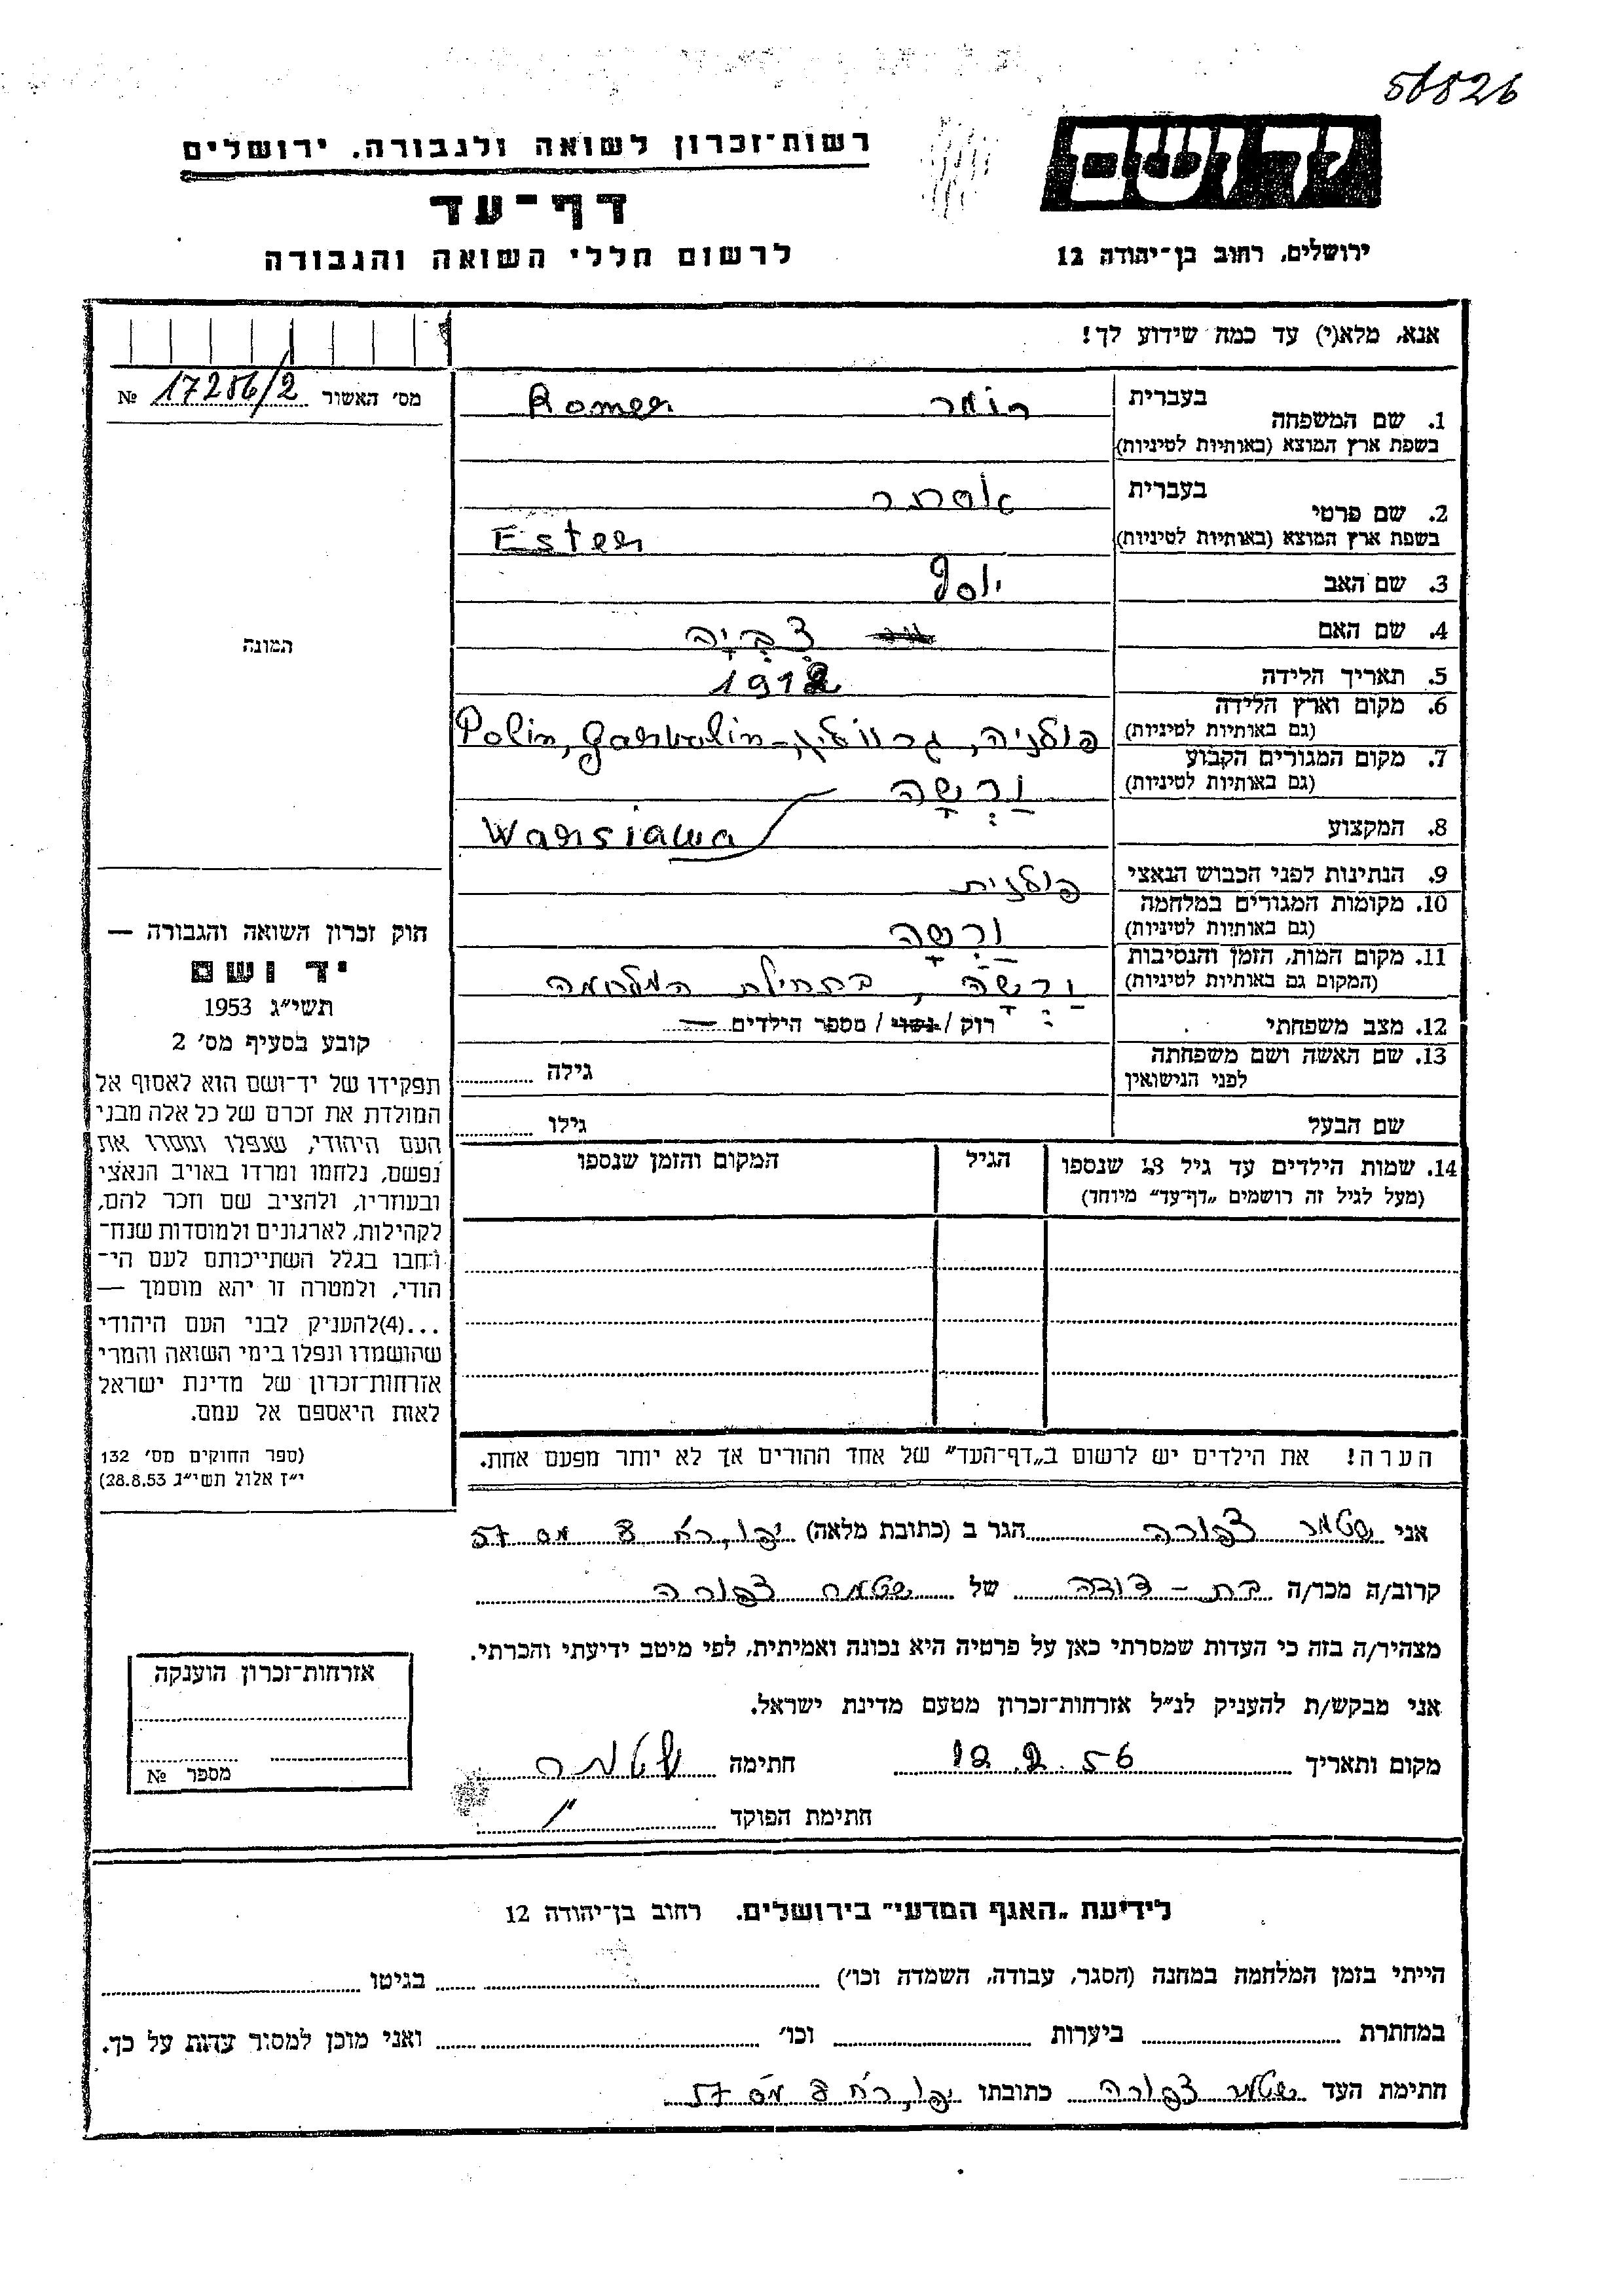 56826
יד ושם
רשות־זכרון לשואה ולגבורה. ירושלים
דף־עד
לרשום חללי השואה והגבורה
ירושלים, רחוב בן־יהודה 12
אנא, מלא(י) עד כמה שידוע לך!
מס׳ האשור 17286/2 №
המונה
בעברית רומר Romer
1. שם המשפחה
בשפת ארץ המוצא (באותיות לטיניות)
בעברית אסתר
2. שם פרטי
בשפת ארץ המוצא (באותיות לטיניות) Ester
3. שם האב יוסף
4. שם האם צִבְיָה
5. תאריך הלידה 1912
6. מקום וארץ הלידה
(גם באותיות לטיניות) פולניה, גרוולין - Polin, Garwolin
7. מקום המגורים הקבוע
(גם באותיות לטיניות) וַרְשָה
8. המקצוע Warsiawa
9. הנתינות לפני הכבוש הנאצי פולנית
10. מקומות המגורים במלחמה
(גם באותיות לטיניות) ורַשָה
11. מקום המות, הזמן והנסיבות
(המקום גם באותיות לטיניות) וַרְשָה, בתחילת המלחמה
12. מצב משפחתי רוק / נשוי / מספר הילדים —
13. שם האשה ושם משפחתה
לפני הנישואין גילה
שם הבעל גילו
14. שמות הילדים עד גיל 18 שנספו הגיל המקום והזמן שנספו
(מעל לגיל זה רושמים „דף־עד״ מיוחד)
הערה! את הילדים יש לרשום ב„דף־העד״ של אחד ההורים אך לא יותר מפעם אחת.
חוק זכרון השואה והגבורה —
יד ושם
תשי״ג 1953
קובע בסעיף מס׳ 2
תפקידו של יד־ושם הוא לאסוף אל
המולדת את זכרם של כל אלה מבני
העם היהודי, שנפלו ומסרו את
נפשם, נלחמו ומרדו באויב הנאצי
ובעוזריו, ולהציב שם וזכר להם,
לקהילות, לארגונים ולמוסדות שנח־
רבו בגלל השתייכותם לעם הי־
הודי, ולמטרה זו יהא מוסמך —
...(4)להעניק לבני העם היהודי
שהושמדו ונפלו בימי השואה והמרי
אזרחות־זכרון של מדינת ישראל
לאות היאספם אל עמם.
(ספר החוקים מס׳ 132
י״ז אלול תשי״ג 28.8.53)
אני שטמר צפורה הגר ב (כתובת מלאה) יפו, רח 3 מס 57
קרוב/ה מכר/ה בת - דודה של שטמר צפורה
מצהיר/ה בזה כי העדות שמסרתי כאן על פרטיה היא נכונה ואמיתית, לפי מיטב ידיעתי והכרתי.
אני מבקש/ת להעניק לנ״ל אזרחות־זכרון מטעם מדינת ישראל.
מקום ותאריך 12.2.56 חתימה שטמר
חתימת הפוקד
אזרחות־זכרון הוענקה
מספר №
לידיעת „האגף המדעי״ בירושלים. רחוב בן־יהודה 12
הייתי בזמן המלחמה במחנה (הסגר, עבודה, השמדה וכו׳) בגיטו
במחתרת ביערות וכו׳ ואני מוכן למסור עדות על כך.
חתימת העד שטמר צפורה כתובתו יפו, רח 3 מס 57